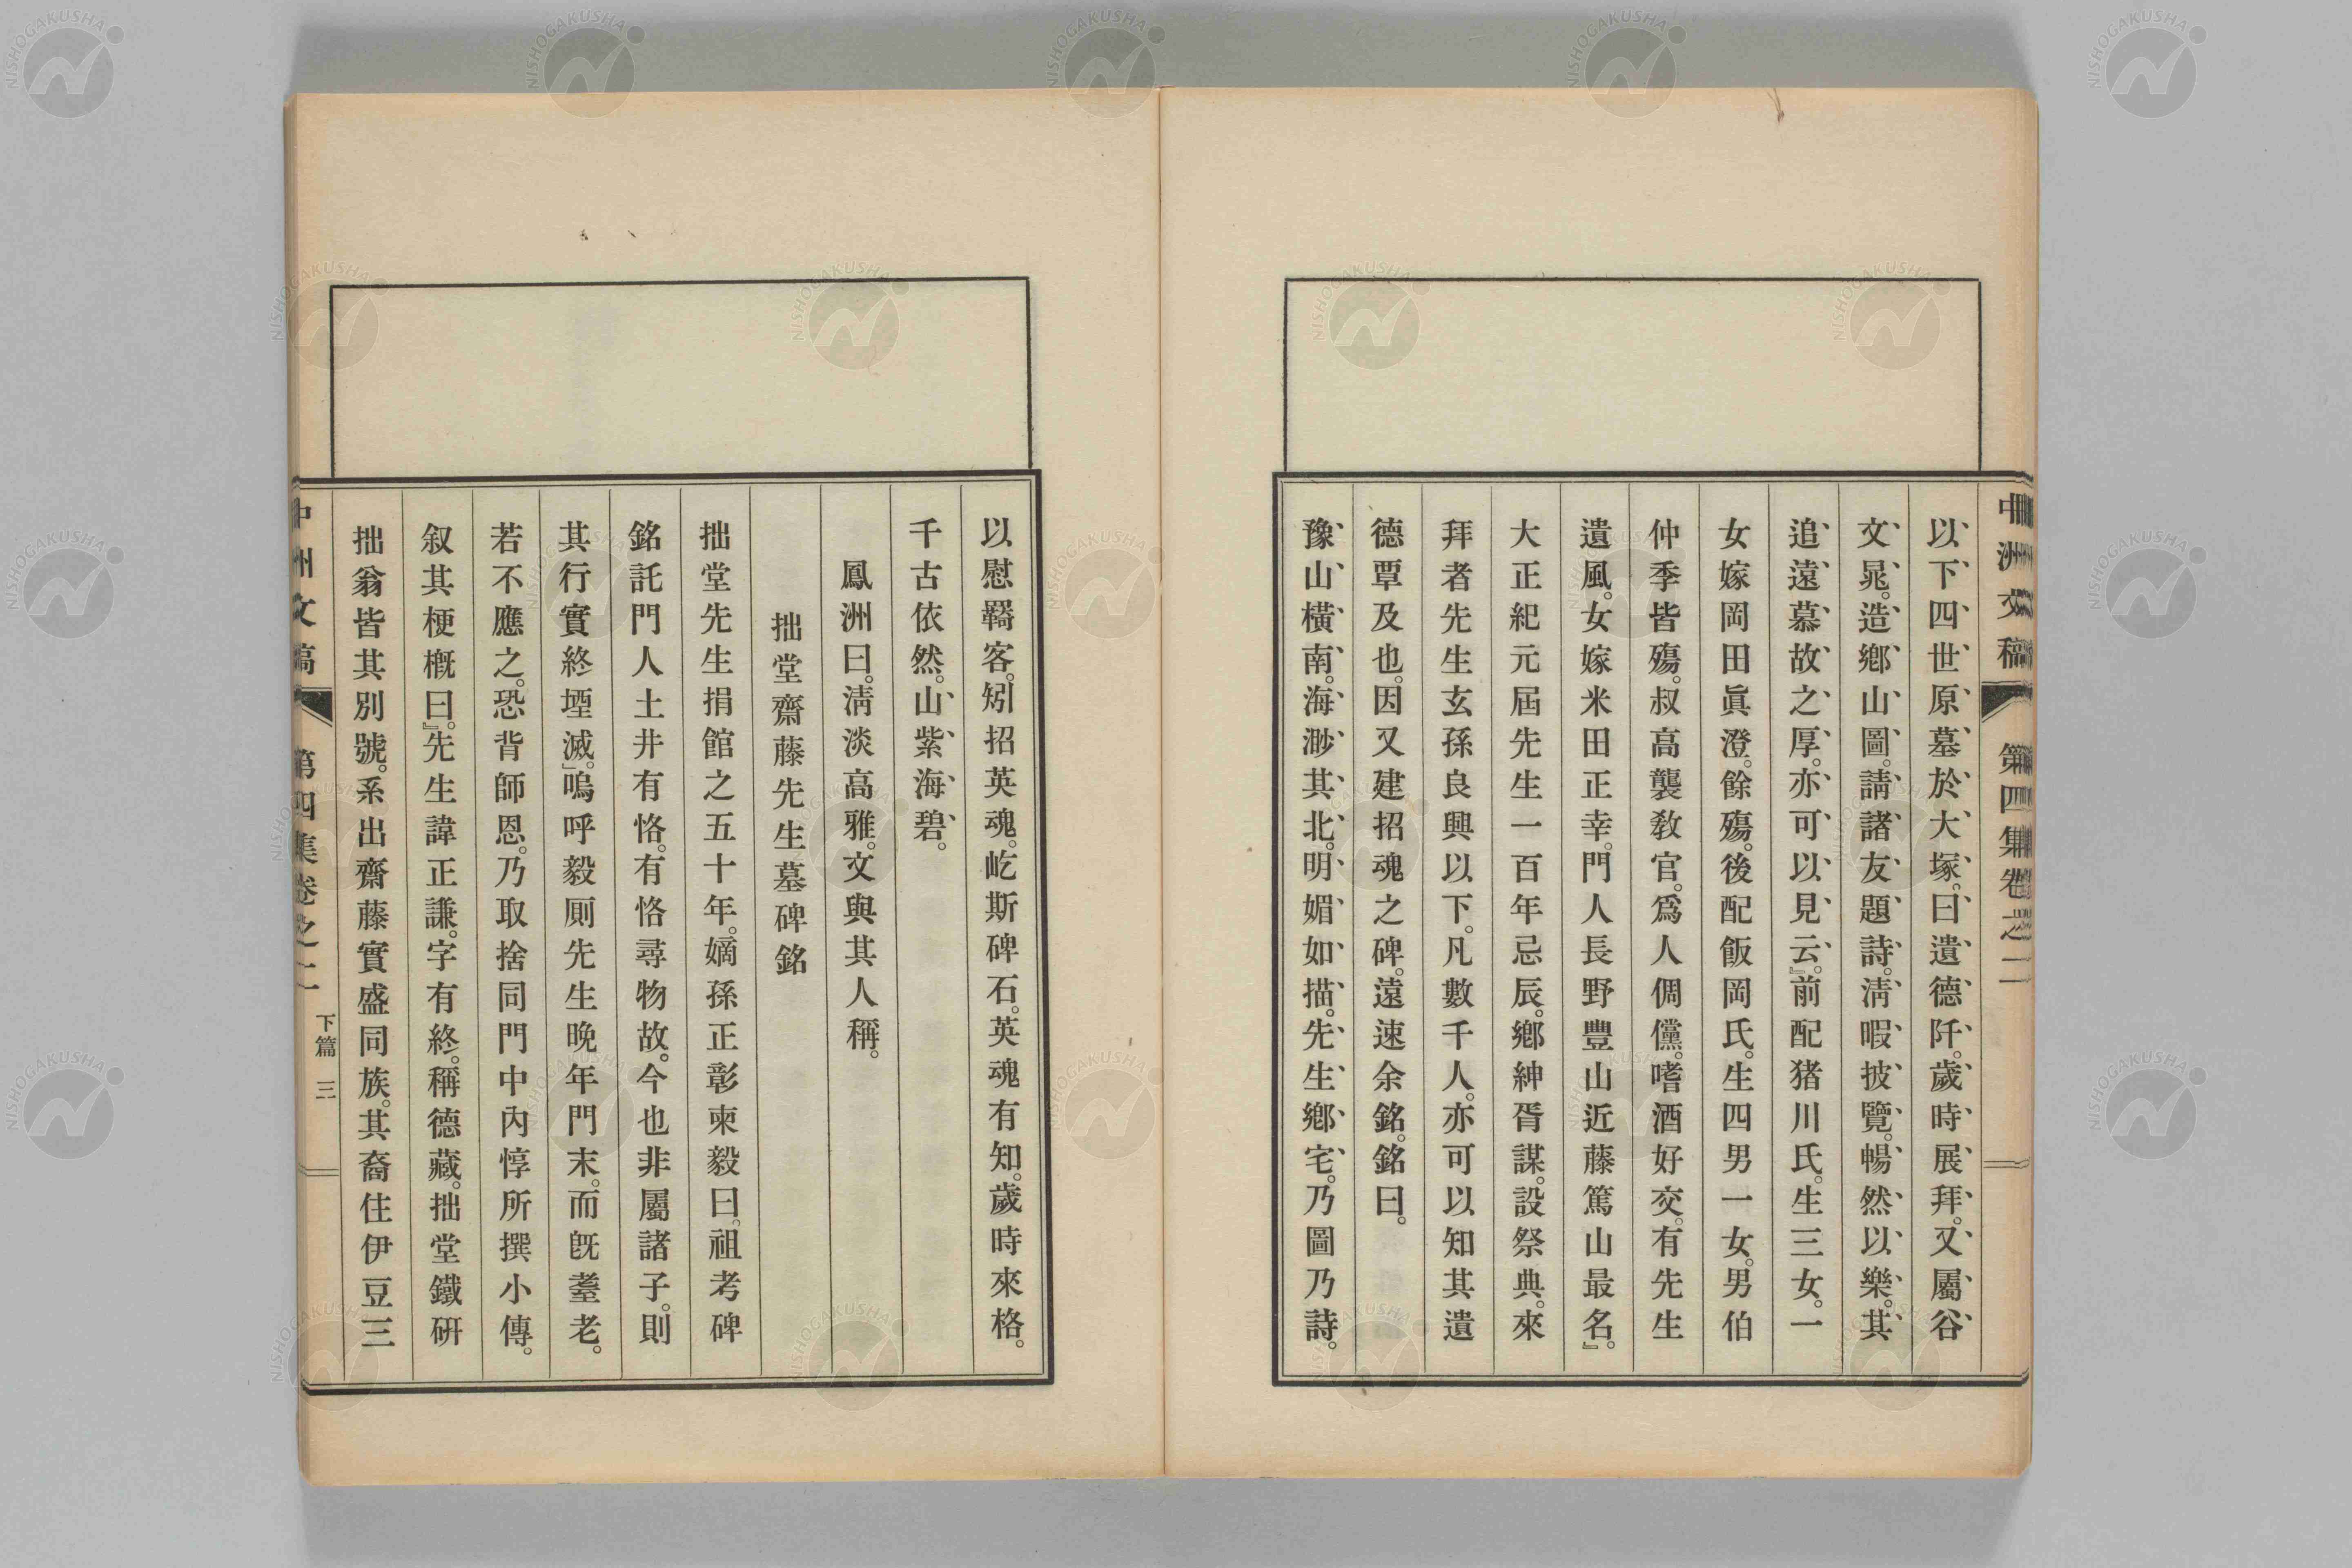 中洲文稿 第四集卷之二
以下四世原墓於大塚。曰遺德阡。歲時展拜。又屬谷
文晁。造鄉山圖。請諸友題詩。淸暇披覽。暢然以樂。其
追遠慕故之厚。亦可以見云。』前配猪川氏。生三女。一
女嫁岡田眞澄。餘殤。後配飯岡氏。生四男一女。男伯
仲季皆殤。叔高襲敎官。爲人倜儻。嗜酒好交。有先生
遺風。女嫁米田正幸。門人長野豐山近藤篤山最名。』
大正紀元屆先生一百年忌辰。鄉紳胥謀。設祭典。來
拜者先生玄孫良興以下。凡數千人。亦可以知其遺
德覃及也。因又建招魂之碑。遠速余銘。銘曰。
豫山橫南。海渺其北。明媚如描。先生鄉宅。乃圖乃詩。
以慰羇客。矧招英魂。屹斯碑石。英魂有知。歲時來格。
千古依然。山紫海碧。
鳳洲曰。淸淡高雅。文與其人稱。
拙堂齋藤先生墓碑銘
拙堂先生捐館之五十年。嫡孫正彰柬毅曰。祖考碑
銘託門人土井有恪。有恪尋物故。今也非屬諸子。則
其行實終堙滅。』嗚呼毅厠先生晚年門末。而旣耋老。
若不應之。恐背師恩。乃取捨同門中內惇所撰小傳。
叙其梗槪曰。』先生諱正謙。字有終。稱德藏。拙堂鐵硏
拙翁皆其別號。系出齋藤實盛同族。其裔住伊豆三
中洲文稿 第四集卷之二 下篇 三